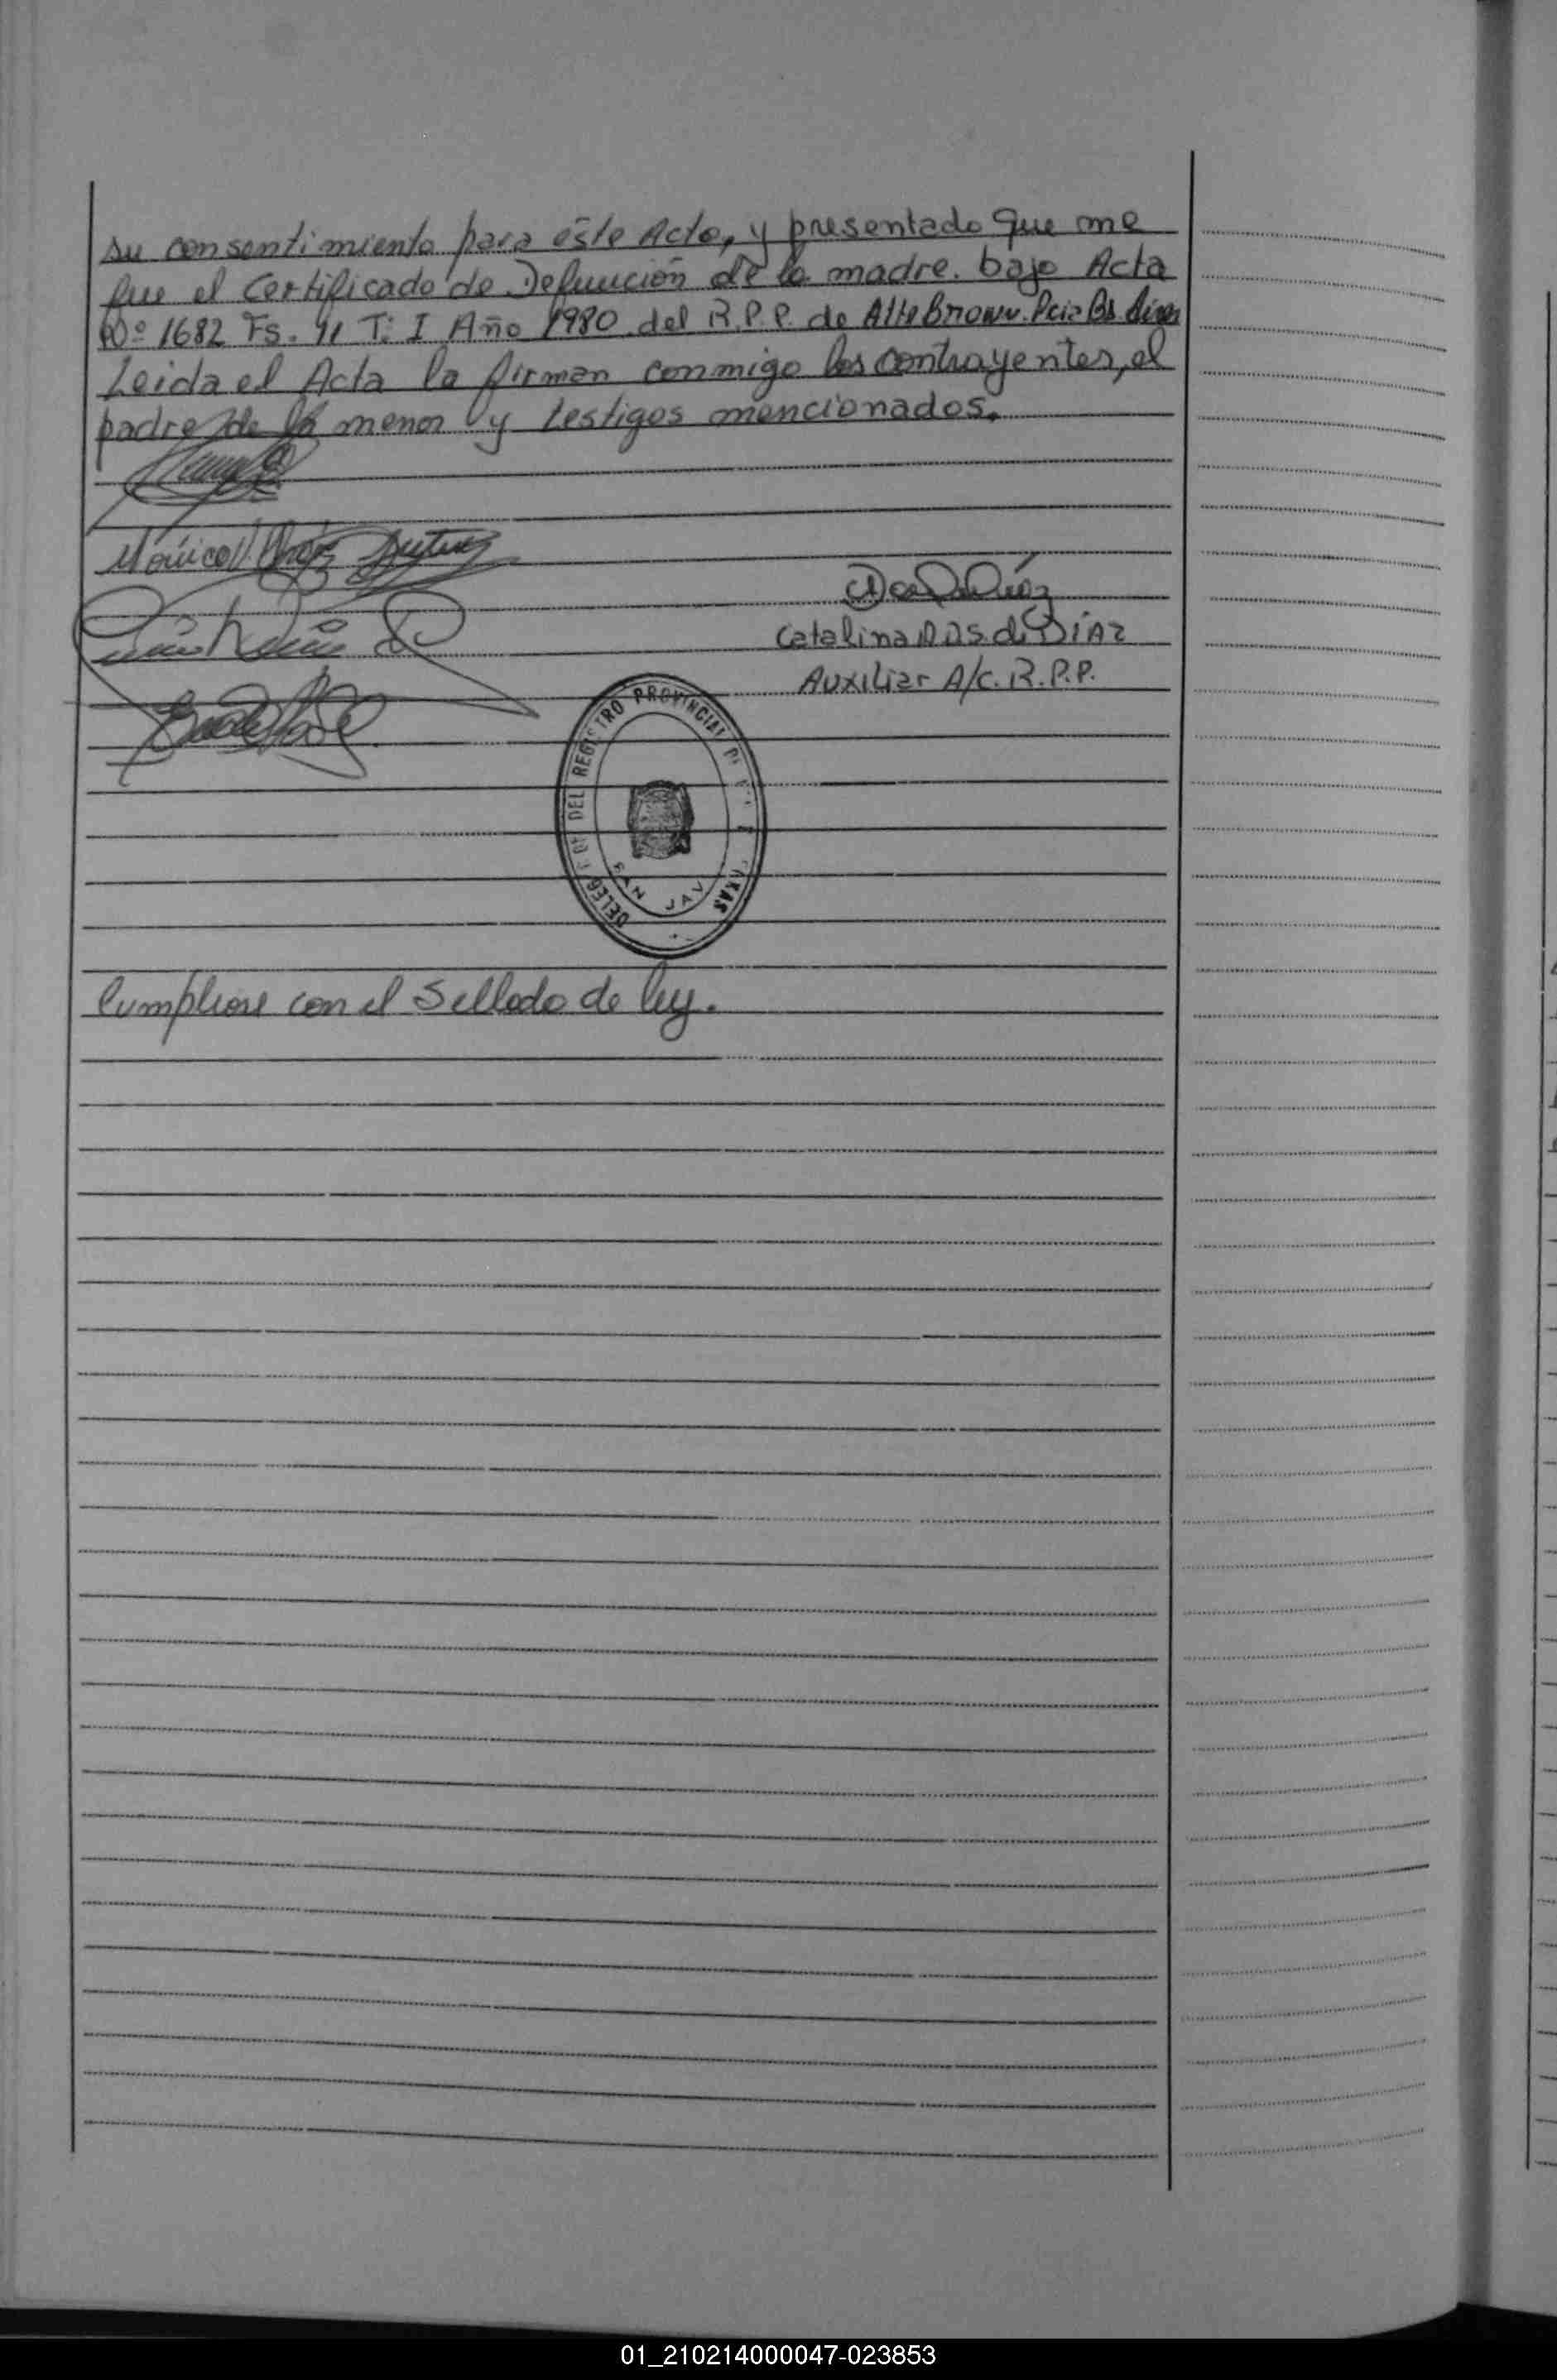 su consentimiento para este Acto, y presentado que me
fue el Certificado de Defunción de la madre. bajo Acta
Nº 1682 Fs. 91 T: I Año 1980 del R.P.P. de Alte Brown. Pcia Bs Aires
Leida el Acta la firman conmigo los contrayentes, el
padre de la menor y testigos mencionados.
Mónica
Catalina D.D.S. de DÍAZ
Auxiliar A/C. R.P.P.
DEL REGISTRO PROVINCIAL DE
SAN JAV
Cumpliose con el Sellado de ley.
01_210214000047-023853